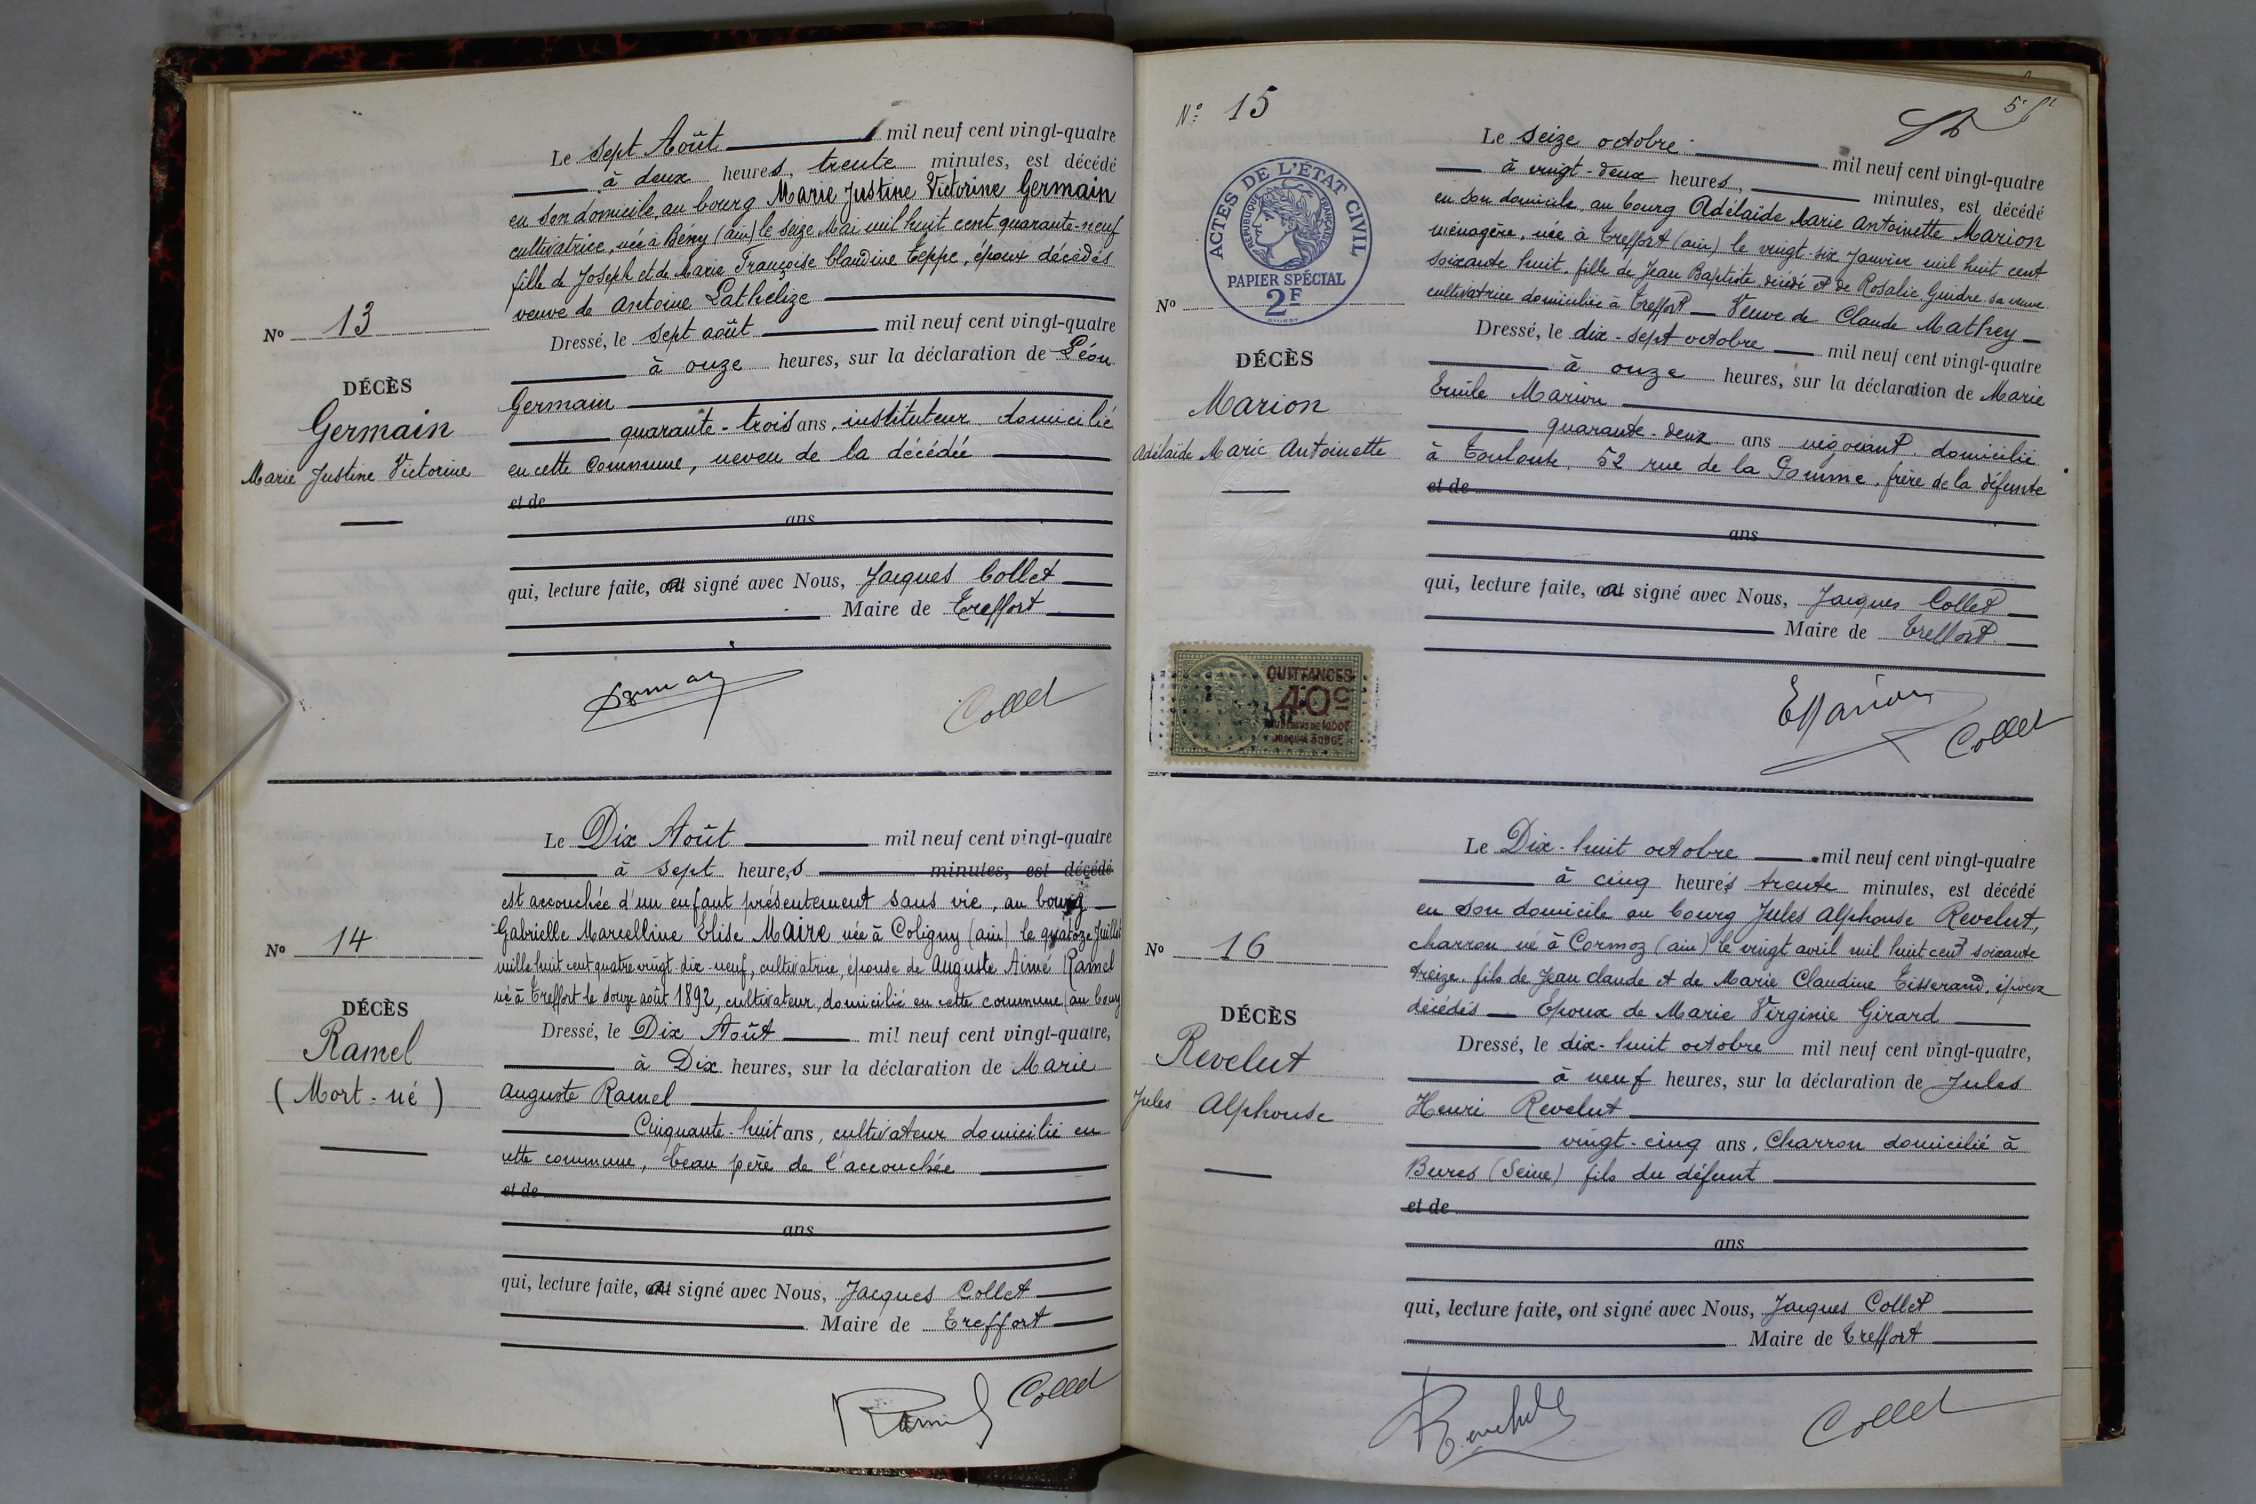 Le Sept Août mil neuf cent vingt-quatre
à deux heures, trente minutes, est décédé
en son domicile au bourg Marie Justine Victorine Germain
cultivatrice, née à Bény (ain) le seize Mai mil huit cent quarante-neuf
fille de Joseph et de Marie Françoise Claudine Teppe, époux décédés
veuve de Antoine Lathelize
Dressé, le sept août mil neuf cent vingt-quatre
à onze heures, sur la déclaration de Léon
Germain
quarante-trois ans, instituteur domicilié
en cette Commune, neveu de la décédée
et de
ans
qui, lecture faite, a signé avec Nous, Jacques Collet
Maire de Treffort
Collet
No 13
DÉCÈS
Germain
Marie Justine Victorine
Le Dix Août mil neuf cent vingt-quatre
à sept heures minutes, est décédé
est accouchée d'un enfant présentement sans vie, au bourg
Gabrielle Marcelline Elise Maire née à Coligny (ain) le quatoze Juillet
mille huit cent quatre vingt-dix-neuf, cultivatrice, épouse de Auguste Aimé Ramel
né à Treffort le douze août 1892, cultivateur, domicilié en cette commune (au bourg
Dressé, le Dix Août mil neuf cent vingt-quatre,
à Dix heures, sur la déclaration de Marie
Auguste Ramel
Cinquante-huit ans, cultivateur domicilié en
cette commune, beau père de l'accouchée
et de
ans
qui, lecture faite, a signé avec Nous, Jacques Collet
Maire de Treffort
Ramel
Collet
No 14
DÉCÈS
Ramel
(Mort-né)
No 15
ACTES DE L'ÉTAT CIVIL
RÉPUBLIQUE FRANÇAISE
PAPIER SPÉCIAL
2F
No
DÉCÈS
Marion
Adélaïde Marie Antoinette
QUITTANCES
40c
Le seize octobre mil neuf cent vingt-quatre
à vingt-deux heures, minutes, est décédé
en son domicile au bourg Adélaïde Marie Antoinette Marion
ménagère, née à Treffort (ain) le vingt-six Janvier mil huit cent
soixante huit, fille de Jean Baptiste, décédé et de Rosalie Guidre sa veuve
cultivatrice domiciliée à Treffort Veuve de Claude Mathey
Dressé, le dix-sept octobre mil neuf cent vingt-quatre
à onze heures, sur la déclaration de Marie
Emile Marion
quarante-deux ans négociant, domicilié
à Toulouse, 52 rue de la Pomme, frère de la défunte
et de
ans
qui, lecture faite, a signé avec Nous, Jacques Collet
Maire de Treffort
EMarion
Collet
Le Dix-huit octobre mil neuf cent vingt-quatre
à cinq heures trente minutes, est décédé
en son domicile au bourg Jules Alphonse Revelut,
charron né à Cormoz (ain) le vingt avril mil huit cent soixante
treize, fils de Jean Claude et de Marie Claudine Tisserand, époux
décédés Epoux de Marie Virginie Girard
Dressé, le dix-huit octobre mil neuf cent vingt-quatre,
à neuf heures, sur la déclaration de Jules
Henri Revelut
vingt-cinq ans, Charron domicilié à
Bures (Seine) fils du défunt
et de
ans
qui, lecture faite, ont signé avec Nous, Jacques Collet
Maire de Treffort
Collet
No 16
DÉCÈS
Revelut
Jules Alphonse